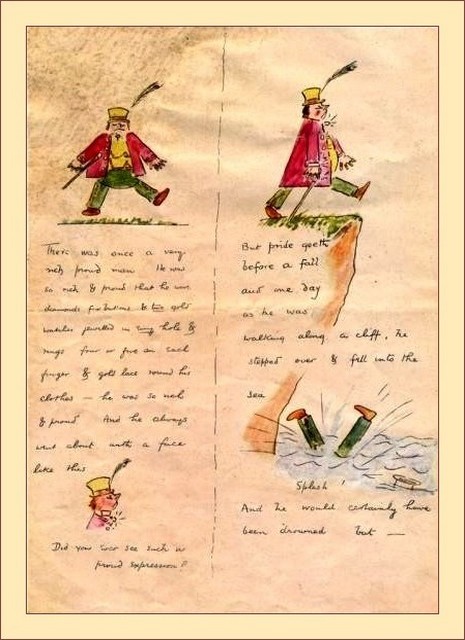 There was once a very
rich proud man He was
so rich & proud that he wore
diamonds for buttons & two gold
watches jewelled in every hole &
rings four or five on each
finger & gold lace round his
clothes — he was so rich
& proud And he always
went about with a face
like this
Did you ever see such a
proud expression?
But pride goeth
before a fall
and one day
as he was
walking along a cliff, he
stepped over & fell into the
sea
Splash!
And he would certainly have
been drowned but —